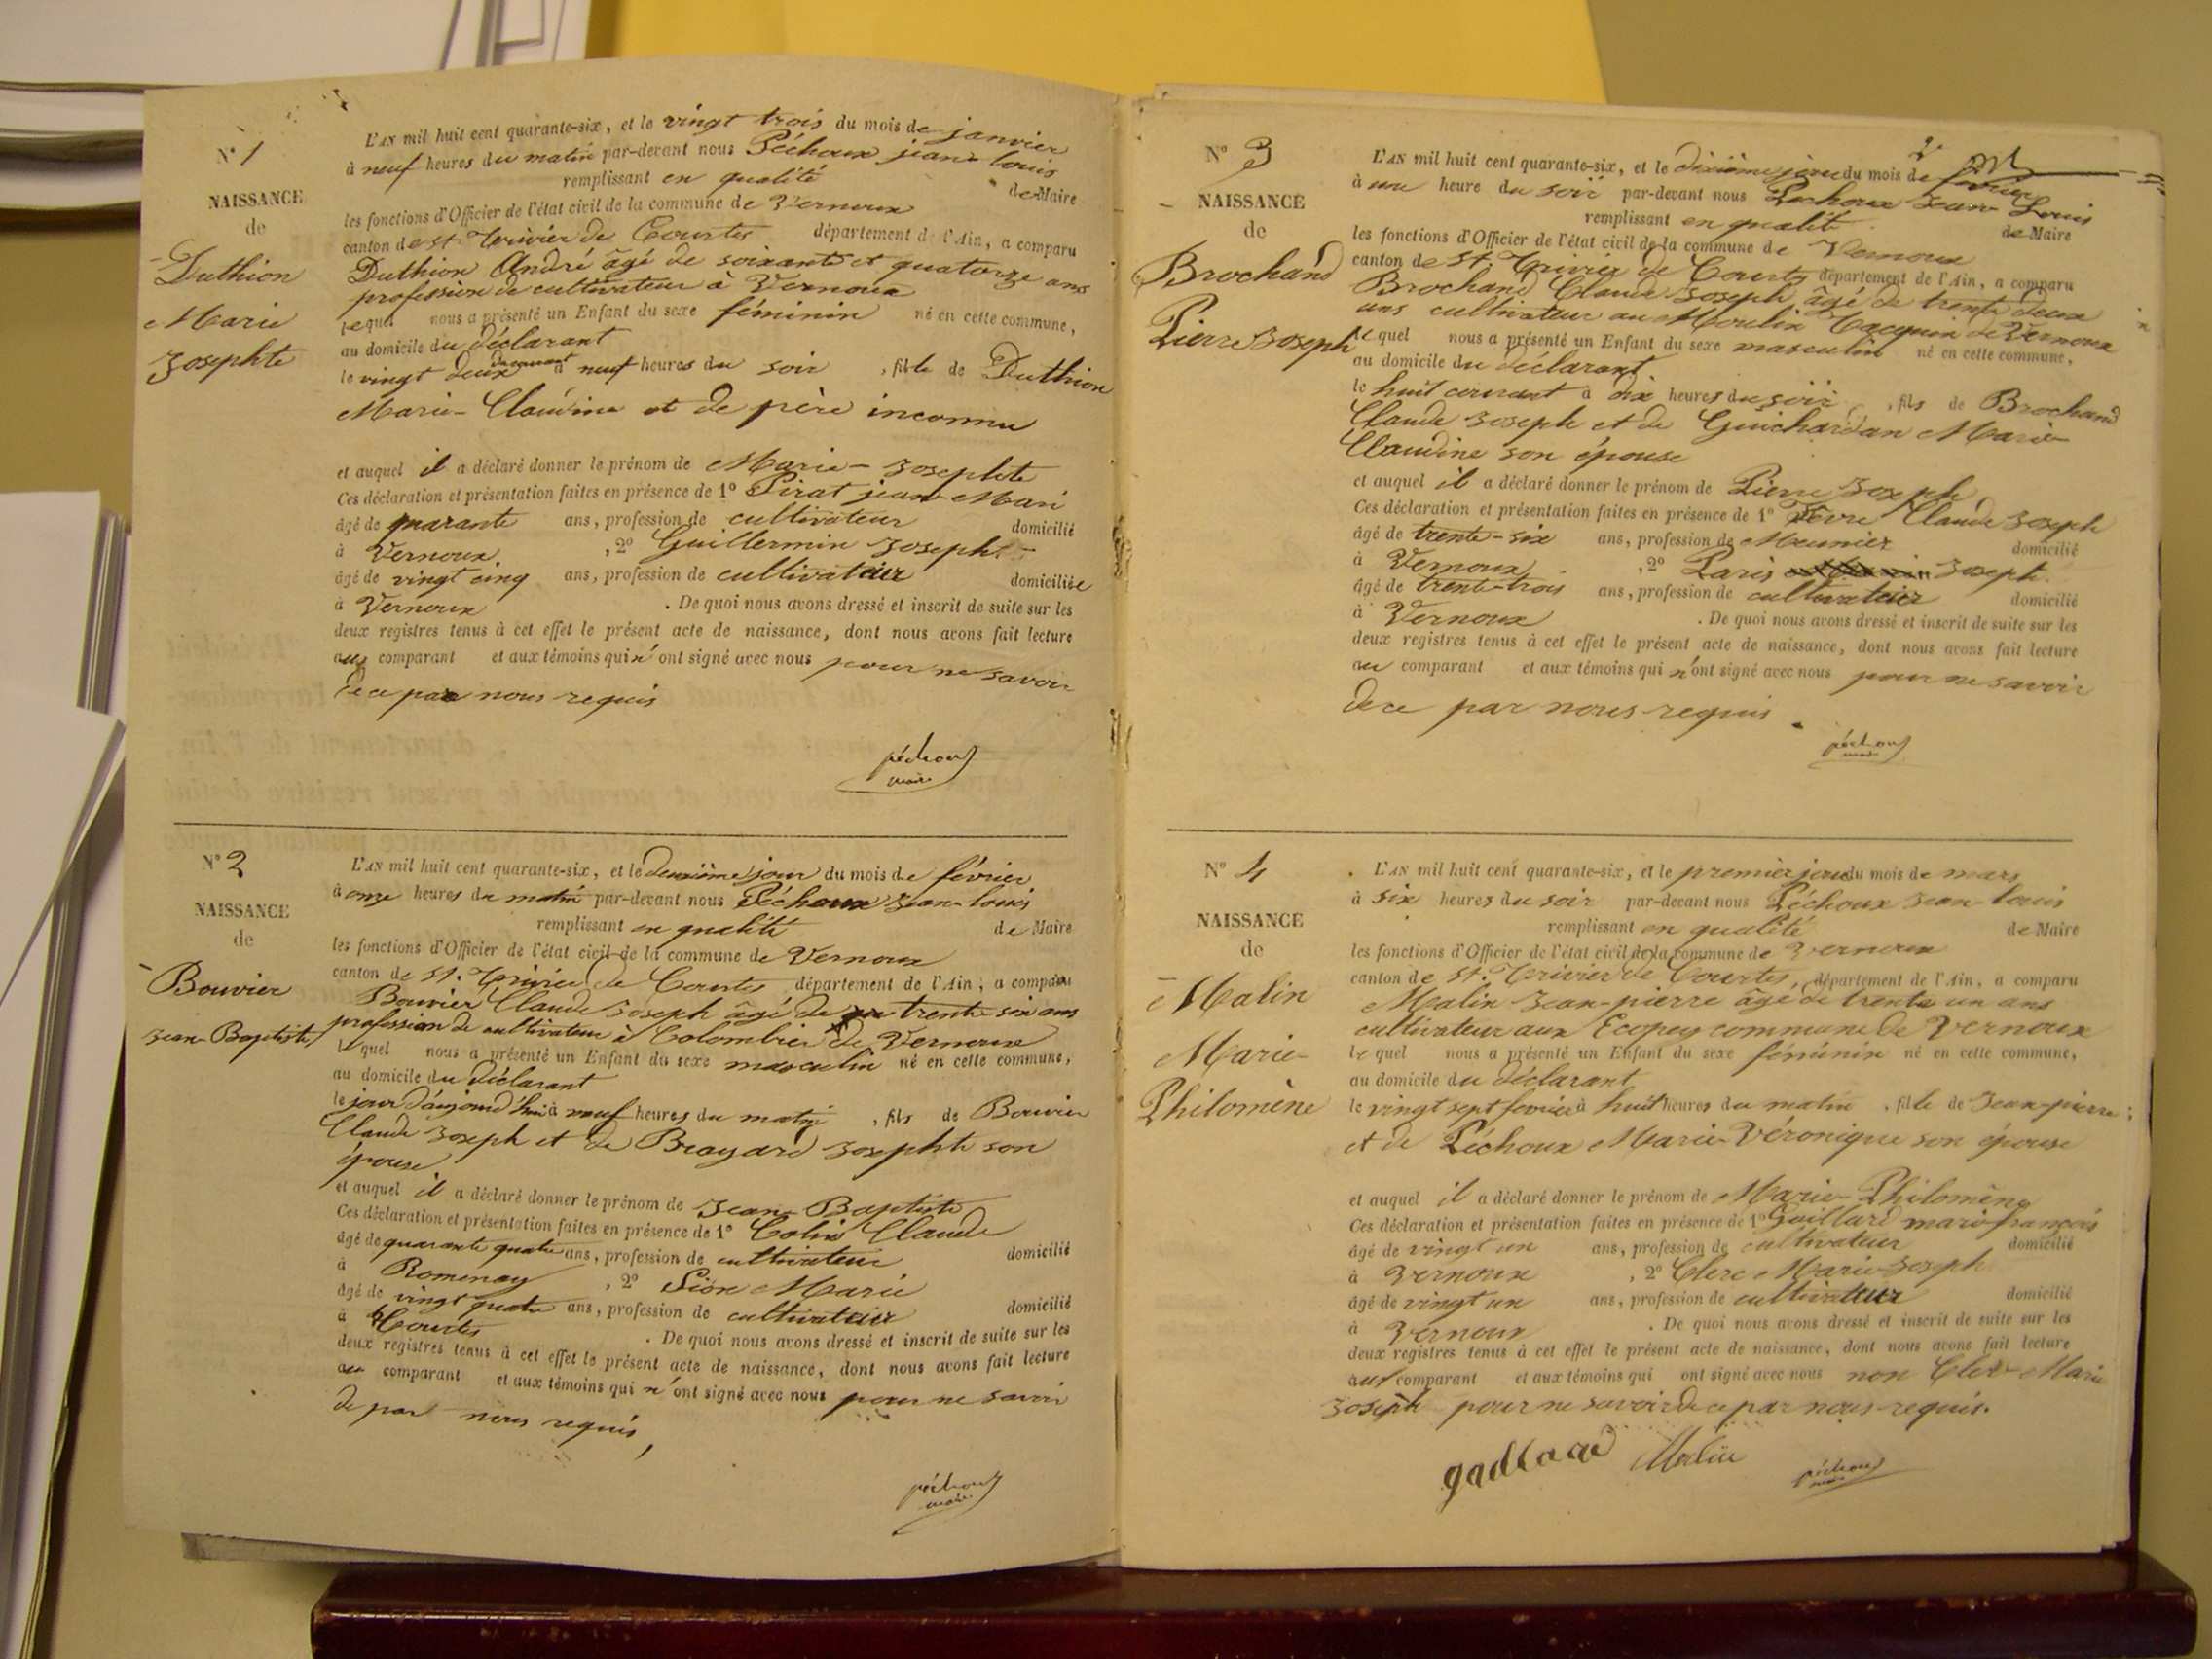 N° 1
NAISSANCE
de
Duthion
Marie
Josephte
L'AN mil huit cent quarante-six, et le vingt trois du mois de janvier
à neuf heures du matin par-devant nous Péchoux jean-louis
remplissant en qualité de Maire
les fonctions d'Officier de l'état civil de la commune de Vernoux
canton de St. Trivier de Courtes département de l'Ain, a comparu
Duthion André âgé de soixante et quatorze ans
profession de cultivateur à Vernoux
lequel nous a présenté un Enfant du sexe féminin né en cette commune,
au domicile du déclarant
le vingt deux du courant à neuf heures du soir, fille de Duthion
Marie-Claudine et de père inconnu
et auquel il a déclaré donner le prénom de Marie-Josephte
Ces déclaration et présentation faites en présence de 1° Pirat jean-Mari
âgé de quarante ans, profession de cultivateur domicilié
à Vernoux, 2° Guillermin Joseph
âgé de vingt cinq ans, profession de cultivateur domiciliée
à Vernoux. De quoi nous avons dressé et inscrit de suite sur les
deux registres tenus à cet effet le présent acte de naissance, dont nous avons fait lecture
aux comparant et aux témoins qui n'ont signé avec nous pour ne savoir
de ce par nous requis
péchoux
maire
N° 2
NAISSANCE
de
Bouvier
Jean-Baptiste
L'AN mil huit cent quarante-six, et le deuxième jour du mois de février
à onze heures du matin par-devant nous Péchoux Jean-louis
remplissant en qualité de Maire
les fonctions d'Officier de l'état civil de la commune de Vernoux
canton de St. Trivier de Courtes département de l'Ain, a comparu
Bouvier Claude Joseph âgé de trente six ans
profession de cultivateur à Colombier de Vernoux
lequel nous a présenté un Enfant du sexe masculin né en cette commune,
au domicile du déclarant
le jour d'aujourd'hui à neuf heures du matin, fils de Bouvier
Claude Joseph et de Brayard Josephte son
épouse
et auquel il a déclaré donner le prénom de Jean-Baptiste
Ces déclaration et présentation faites en présence de 1° Colin Claude
âgé de quarante quatre ans, profession de cultivateur domicilié
à Romenay, 2° Lion Marie
âgé de vingt quatre ans, profession de cultivateur domicilié
à Courtes. De quoi nous avons dressé et inscrit de suite sur les
deux registres tenus à cet effet le présent acte de naissance, dont nous avons fait lecture
au comparant et aux témoins qui n'ont signé avec nous pour ne savoir
de par nous requis,
péchoux
maire
N° 3
NAISSANCE
de
Brochand
Pierre Joseph
L'AN mil huit cent quarante-six, et le dixième jour du mois de février
à une heure du soir par-devant nous Péchoux Jean Louis
remplissant en qualité de Maire
les fonctions d'Officier de l'état civil de la commune de Vernoux
canton de St. Trivier de Courtes département de l'Ain, a comparu
Brochand Claude Joseph âgé de trente deux
ans cultivateur au Moulin de Vernoux
lequel nous a présenté un Enfant du sexe masculin né en cette commune,
au domicile du déclarant
le huit courant à dix heures du soir, fils de Brochand
Claude Joseph et de Guichardan Marie
Claudine son épouse
et auquel il a déclaré donner le prénom de Pierre Joseph
Ces déclaration et présentation faites en présence de 1° Fèvre Claude Joseph
âgé de trente-six ans, profession de Meunier domicilié
à Vernoux, 2° Paris Joseph
âgé de trente-trois ans, profession de cultivateur domicilié
à Vernoux. De quoi nous avons dressé et inscrit de suite sur les
deux registres tenus à cet effet le présent acte de naissance, dont nous avons fait lecture
au comparant et aux témoins qui n'ont signé avec nous pour ne savoir
de ce par nous requis.
péchoux
maire
N° 4
NAISSANCE
de
Malin
Marie-
Philomène
L'AN mil huit cent quarante-six, et le premier jour du mois de mars
à six heures du soir par-devant nous Péchoux Jean-louis
remplissant en qualité de Maire
les fonctions d'Officier de l'état civil de la commune de Vernoux
canton de St. Trivier de Courtes, département de l'Ain, a comparu
Malin Jean-pierre âgé de trente un ans
cultivateur aux Ecopey commune de Vernoux
lequel nous a présenté un Enfant du sexe féminin né en cette commune,
au domicile du déclarant
le vingt sept fevrier à huit heures du matin, fille de Jean-pierre;
et de Péchoux Marie-Véronique son épouse
et auquel il a déclaré donner le prénom de Marie-Philomène
Ces déclaration et présentation faites en présence de 1° Gaillard marie françois
âgé de vingt un ans, profession de cultivateur domicilié
à Vernoux, 2° Clerc Marie-Joseph
âgé de vingt un ans, profession de cultivateur domicilié
à Vernoux. De quoi nous avons dressé et inscrit de suite sur les
deux registres tenus à cet effet le présent acte de naissance, dont nous avons fait lecture
aux comparant et aux témoins qui ont signé avec nous non Clerc Marie
Joseph pour ne savoir de ce par nous requis.
Malin péchoux
maire